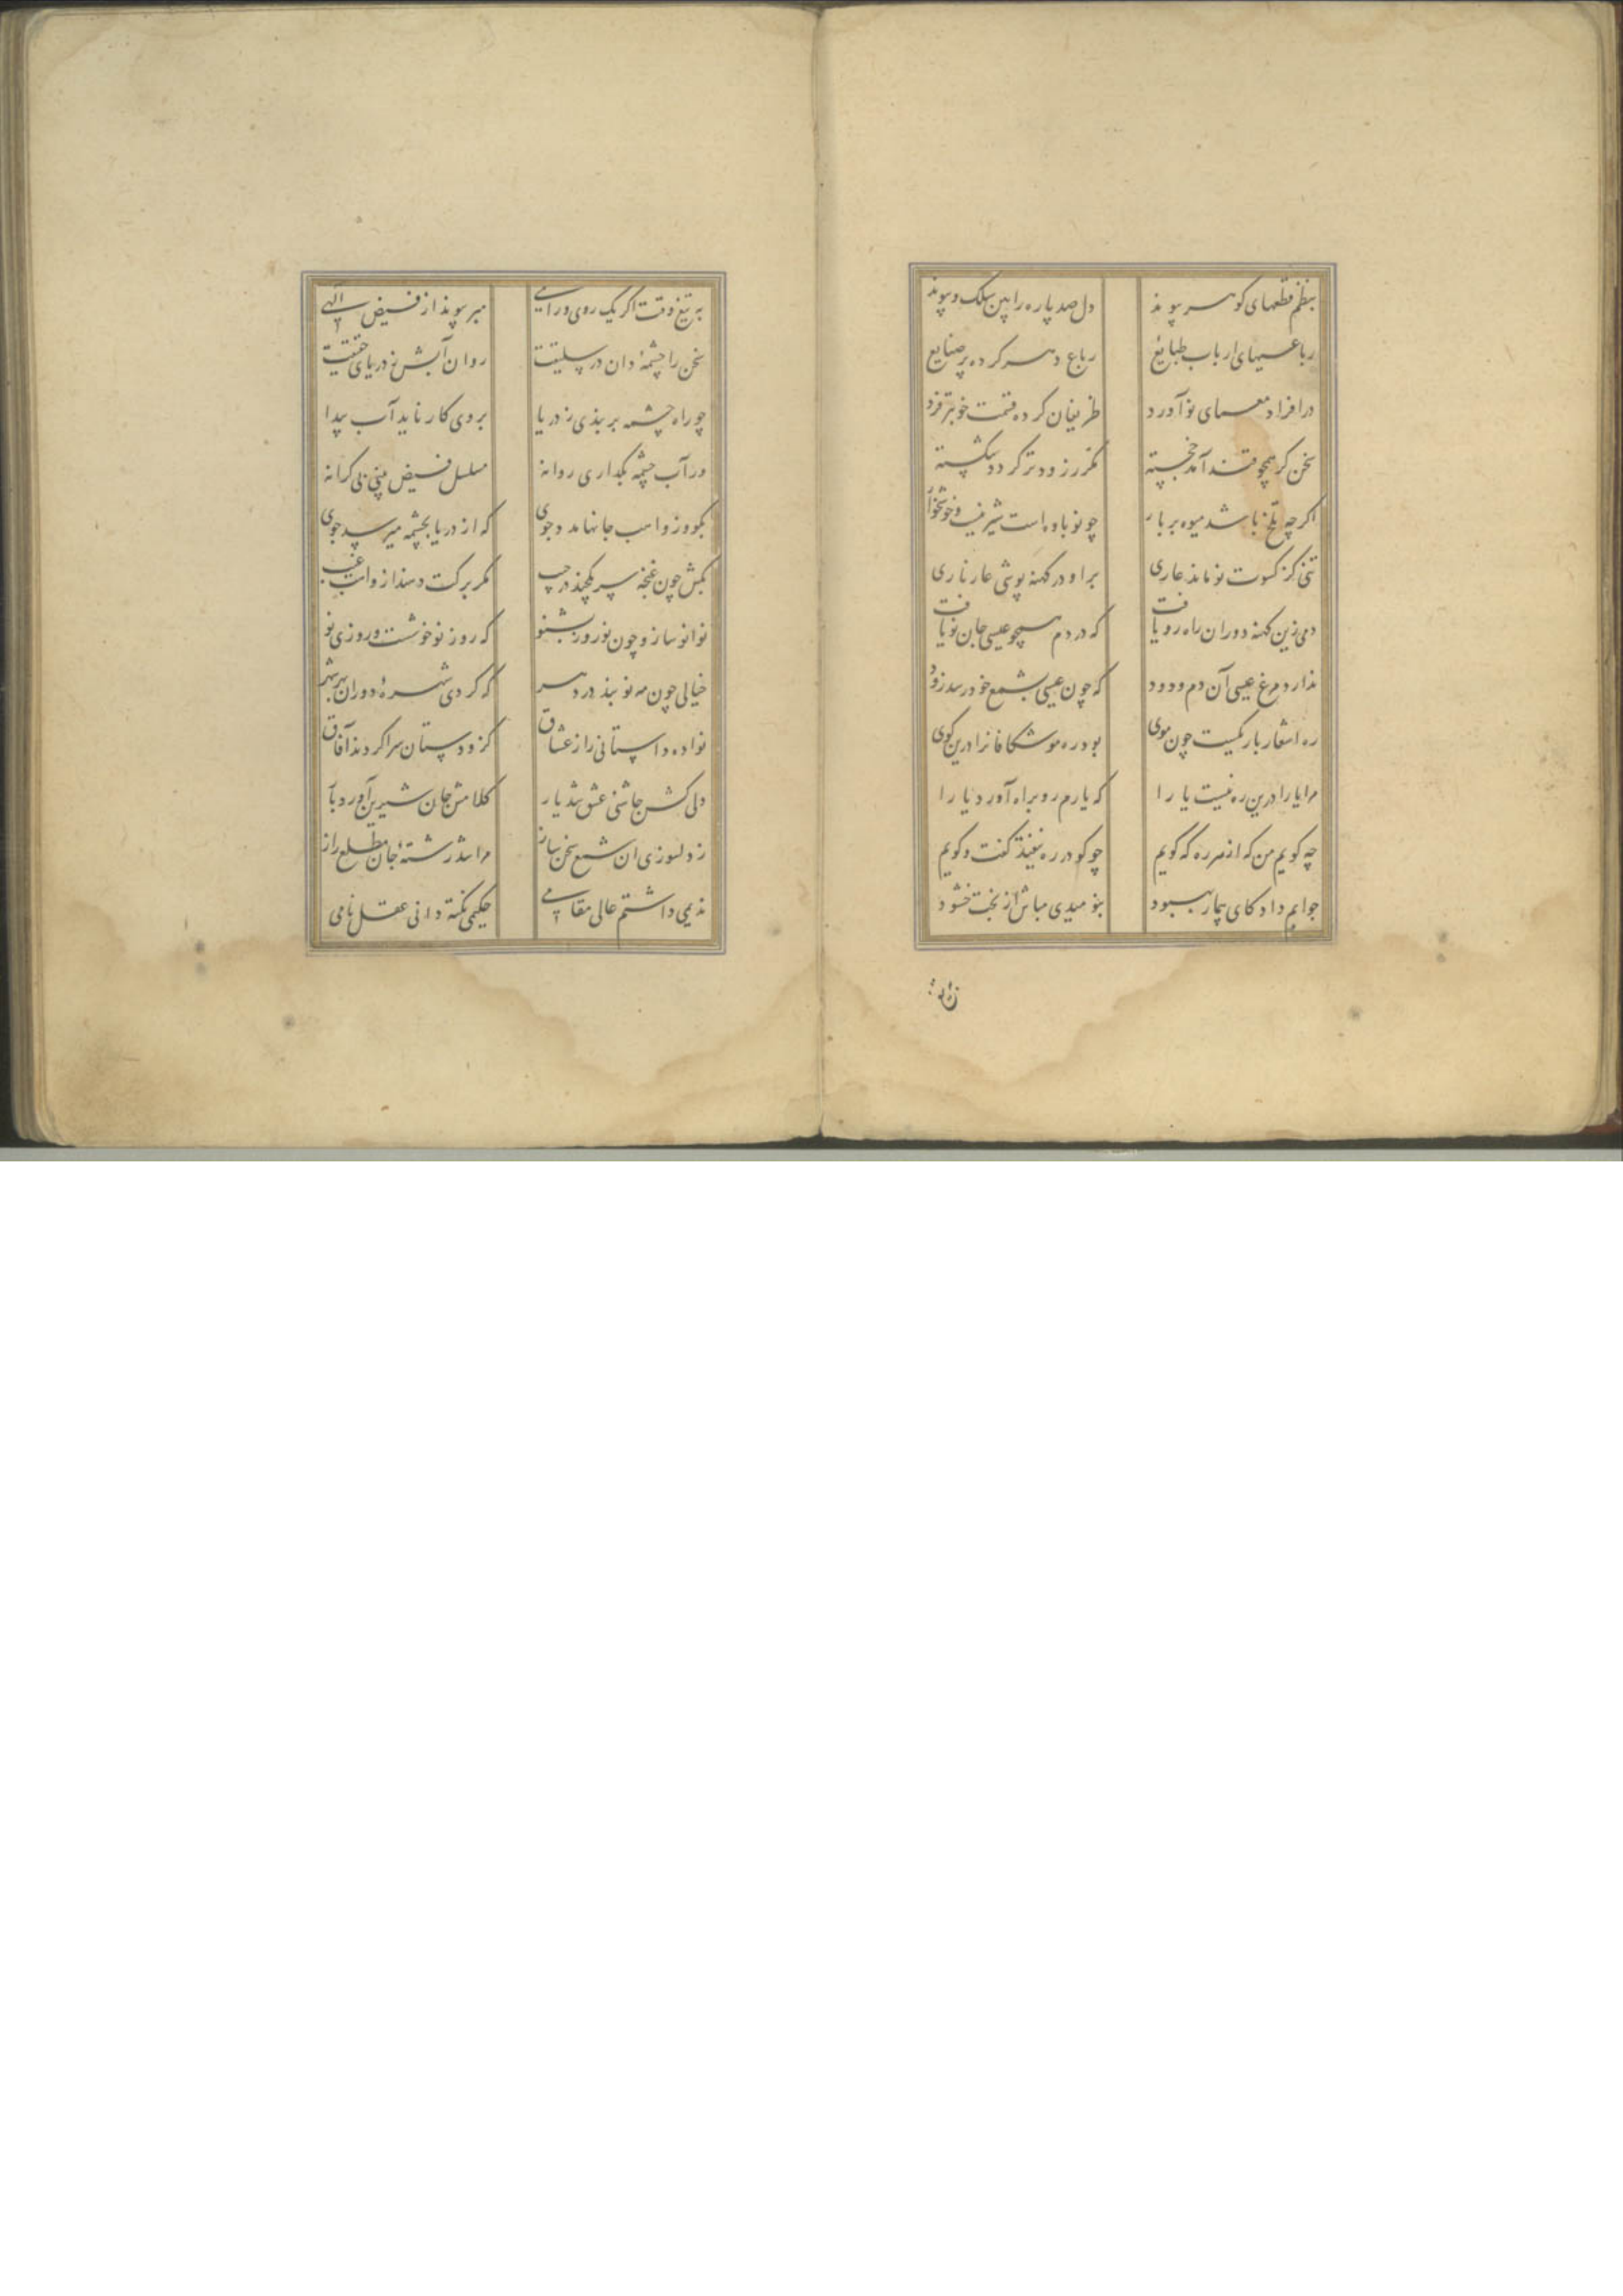 بنظم قطعهای گوهر پیوند دل صد پاره را بین سلک و پیوند
رباعیهای ارباب طبایع رباع دهر کرده پر صنایع
در افراد معمای نوآورد ظریفان کرده قسمت خوبتر فرد
سخن کر همچو قند آمد خجسته مکرر زودتر کردد شکسته
اکرچه تلخ باشد میوه بر بار چو نوباوه است شیرین و خوشخوار
تنی کز کسوت نو ماند عاری بر او در کهنه پوشی عار ناری
دمی زین کهنه دوران راه رو یافت که در دم همچو عیسی جان نو یافت
ندارد مرغ عیسی آن دم و دود که چون عیسی بشمع خود رسد زود
ره اشعار باریکست چون موی بود ره موشکافانرا درین کوی
مرا یارا درین ره نیست یارا که یارم رو براه آورد یارا
چه کویم من که از هر ره که کویم چو کو در ره نیفتد کفت و کویم
جوابم داد کای بیمار بهبود بنومیدی مباش از بخت خشنود
به تیغ وقت اکر یک روی ور آیی میر پیوند از فیض الهی
سخن را چشمهٔ دان در سلیقت روان آبش ز دریای حقیقت
چو راه چشمه بربندی ز دریا بروی کار ناید آب پیدا
ور آب چشمه بگذاری روانه مسلسل فیض بینی بی کرانه
که از دریا بچشمه میرسد جوی
بکش چون غنچه سر یکچند در جیب مکر برکت دهند از واهب غیب
نوا نو ساز و چون نوروز بشنو که روز نو خوشست و روزی نو
خیالی چون مه نو بند در دهر که کردی شهرهٔ دوران
نوا ده داستانی راز عشاق کزو دستان سرا کردند آفاق
دلی کش چاشنی عشق شد یار کلامش جان شیرین آورد بار
ز دلسوزی ان شمع سخن ساز مرا شد رشتهٔ جان مطلع راز
ندیمی داشتم عالی مقامی حکیمی نکته دانی عقل نامی